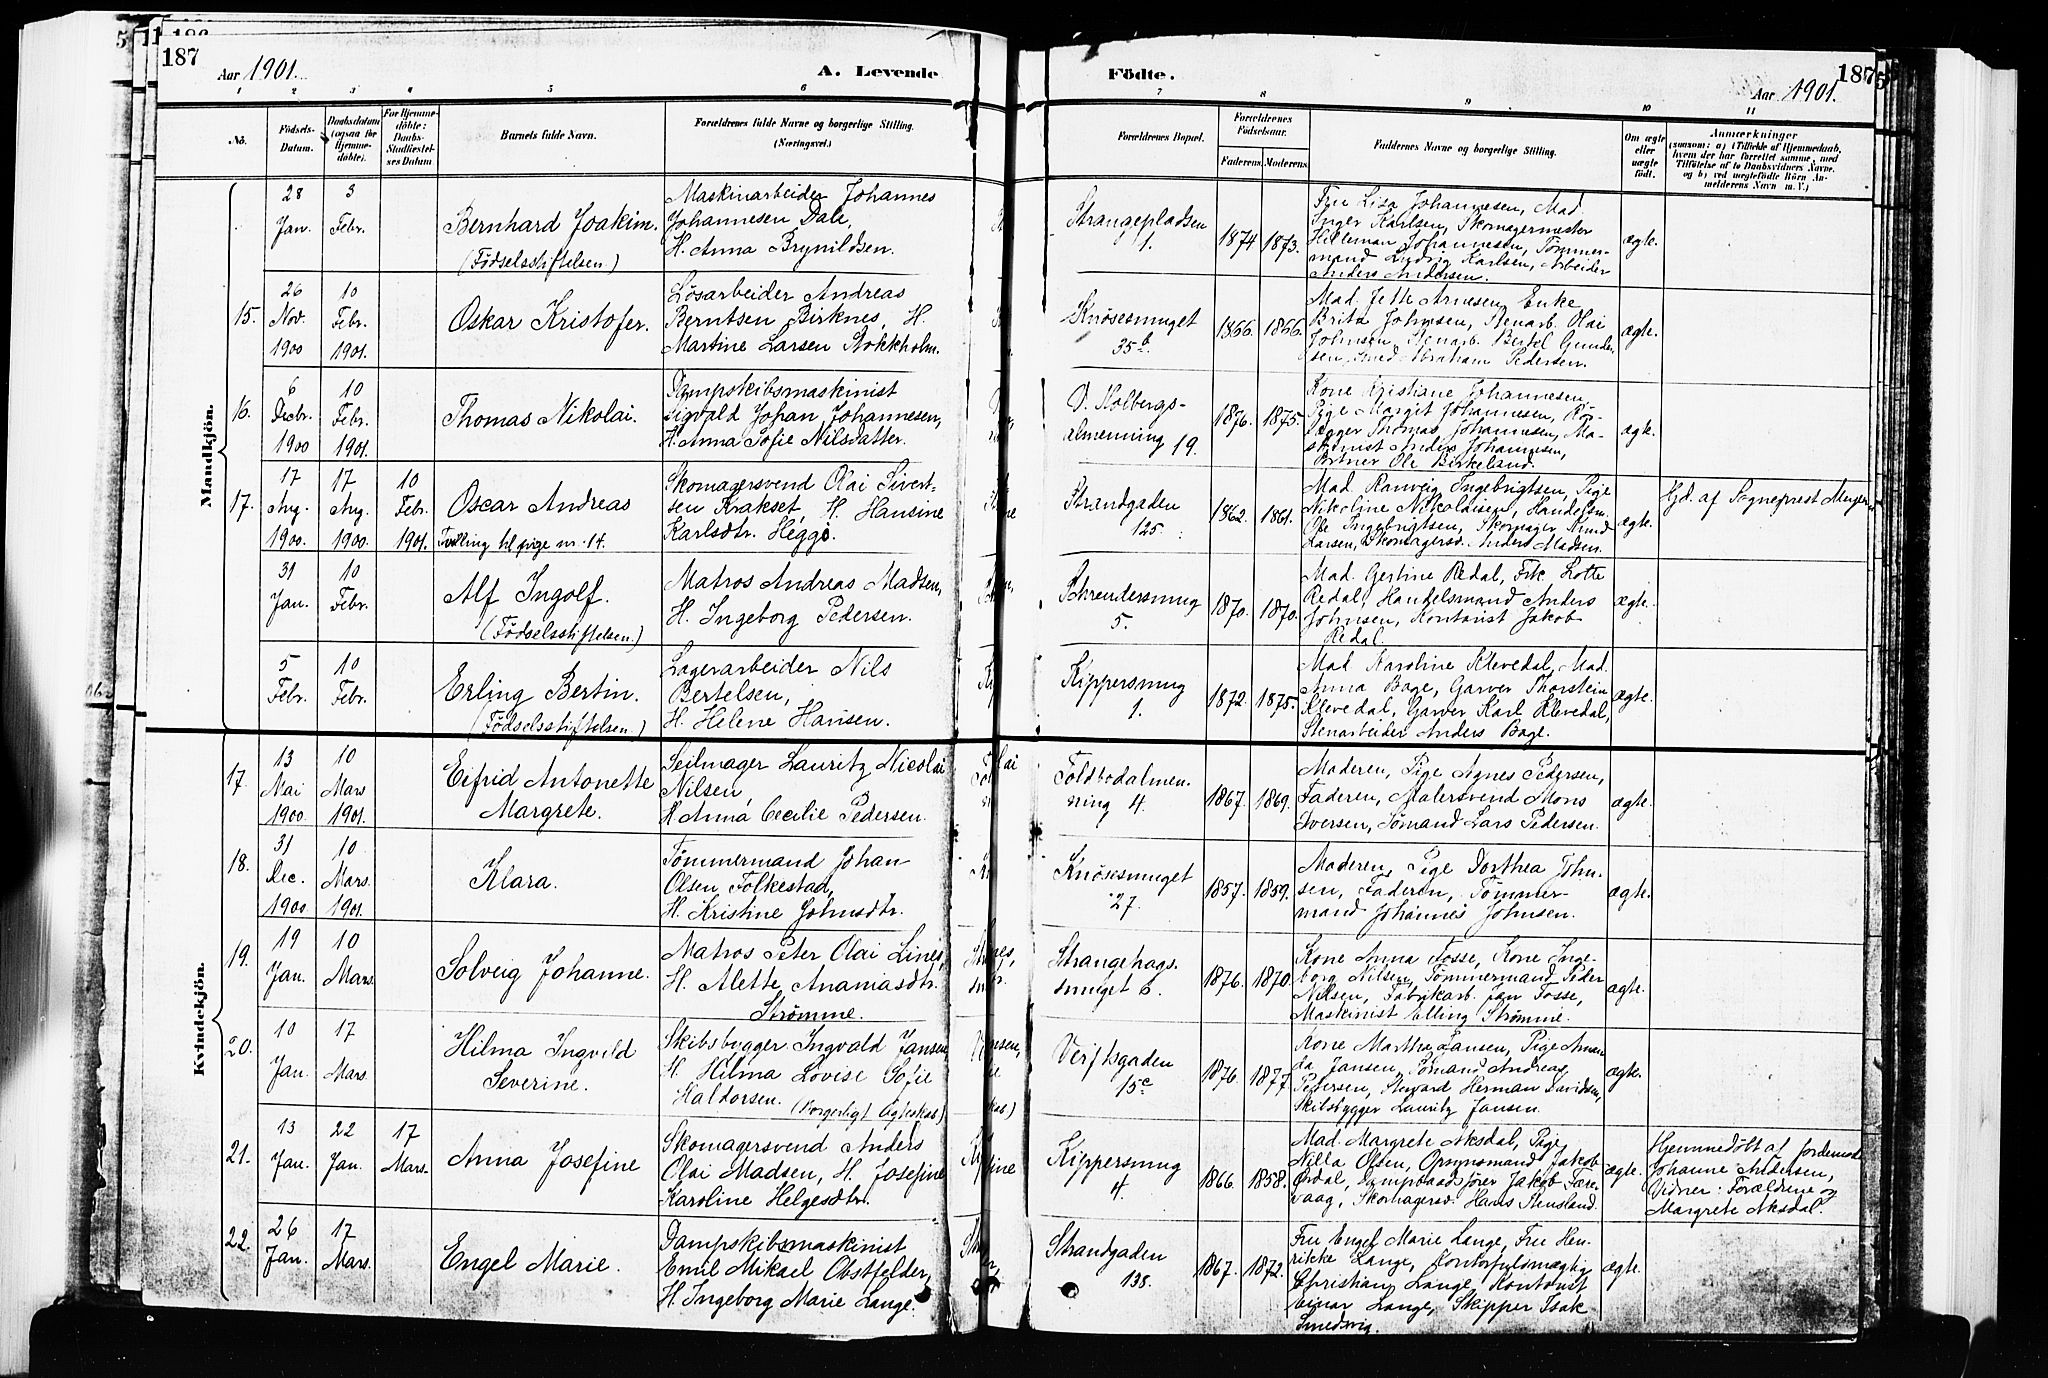 187
Aar 1901.
A. Levende
Födte.
Aar 1901.
187
1 2 3 4 5 6 7 8 9 10 11
No.
Födsels-
Datum.
Daabsdatum
(ogsaa for
Hjemme-
döbte).
For Hjemme-
döbte:
Daabs-
Stadfæstel-
ses Datum
Barnets fulde Navn.
Forældrenes fulde Navne og borgerlige Stilling.
(Næringsvei.)
Forældrenes Bopæl.
Forældrenes
Födselsaar.
Faderens.
Moderens.
Faddernes Navne og borgerlige Stilling.
Om ægte
eller
uægte
födt.
Anmærkninger
(saasom: a) i Tilfælde af Hjemmedaab,
hvem der har forrettet samme, med
Tilföielse af to Daabsvidners Navne,
og b) ved uægtefödte Börn An-
melderens Navn m. V.)
Mandkjön.
28
Jan.
3
Febr.
Bernhard Joakim.
(Fødselsstiftelsen.)
Maskinarbeider Johannes
Johannesen Dale,
H. Anna Brynildsen.
Strangepladsen
1.
1874
1873.
Fru Lisa Johannesen, Mad.
Inger Karlsen, Skomagermester
Hilleman Johannesen, Tømmer-
mand Ludvig Karlsen, Arbeider
Anders Andersen.
ægte.
15.
26
Nov.
1900
10
Febr.
1901.
Oskar Kristofer.
Løsarbeider Andreas
Berntsen Birknes, H.
Martine Larsen Stokkholm.
Knøsesmuget
35b.
1866.
1866.
Mad. Jette Arnesen, Enke
Brita Johnsen, Stenarb. Olai
Johnsen, Stenarb. Bertel Gunder-
sen, Smed Abraham Pedersen.
ægte.
16.
6
Decbr.
1900
10
Febr.
1901.
Thomas Nikolai.
Dampskibsmaskinist
Sigvald Johan Johannesen,
H. Anna Sofie Nilsdatter.
D. Holbergs-
almenning 19.
1876.
1875.
Kone Kristiane Johannesen,
Pige Margit Johannesen, Rør-
lægger Thomas Johannesen, Ma-
skinist Anders Johannesen,
Portner Ole Birkeland.
ægte.
17.
17
Aug.
1900.
17
Aug.
1900.
10
Febr.
1901.
Oscar Andreas
Tvilling til pige nr. 14.
Skomagersvend Olai Sivert-
sen Krakset, H. Hansine
Karlsdtr. Heggø.
Strandgaden
125.
1862.
1861.
Mad. Ranveig Ingebrigtsen, Pige
Nikoline Nikolaisen, Handelsm.
Ole Ingebrigtsen, Skomager Knud
Larsen, Skomagersv. Anders Madsen.
ægte.
Hjd. af Sogneprest Meyer.
31
Jan.
10
Febr.
Alf Ingolf.
(Fødselsstiftelsen.)
Matros Andreas Madsen,
H. Ingeborg Pedersen.
Skrendersmug
5.
1870.
1870.
Mad. Gertine Redal, Frk. Lotte
Redal, Handelsmand Anders
Johnsen, Kontorist Jakob
Redal.
ægte.
5
Febr.
10
Febr.
Erling Bertin.
(Fødselsstiftelsen.)
Lagerarbeider Nils
Bertelsen,
H. Helene Hansen.
Kippersmug
1.
1872.
1875.
Mad. Karoline Klevedal, Mad.
Anna Bage, Garver Thorstein
Klevedal, Garver Karl Klevedal,
Stenarbeider Anders Bage.
ægte.
Kvindekjön.
17.
13
Mai
1900.
10
Mars
1901.
Eifrid Antonette
Margrete.
Seilmager Lauritz Nicolai
Nilsen,
H. Anna Cecilie Pedersen.
Toldbodalmen-
ning 4.
1867.
1869.
Moderen, Pige Agnes Pedersen,
Faderen, Malersvend Mons
Iversen, Sømand Lars Pedersen.
ægte.
18.
31
Dec.
1900
10
Mars.
1901.
Klara.
Tømmermand Johan
Olsen Folkestad,
H. Kristine Johnsdtr.
Knøsesmuget
27.
1857.
1859.
Moderen, Pige Dorthea John-
sen, Faderen, Tømmer-
mand Johannes Johnsen.
ægte.
19.
19
Jan.
10
Mars.
Solveig Johanne.
Matros Peter Olai Lines,
H. Alette Ananiasdtr.
Strømme.
Strangehags-
smuget 6.
1876.
1870.
Kone Anna Fosse, Kone Inge-
borg Nilsen, Tømmermand Peder
Nilsen, Fabrikarb. Jan Fosse,
Maskinist Elling Strømme.
ægte.
20.
10
Jan.
17
Mars.
Hilma Ingvild
Severine.
Skibsbygger Ingvald Jansen,
H. Hilma Lovise Sofie
Haldorsen. (Borgerligt Ægteskab)
Verftsgaden
15c
1876.
1877.
Kone Martha Jansen, Pige Aman-
da Jansen, Sømand Andreas
Pedersen, Steward Herman Davidsen,
Skibsbygger Lauritz Jansen.
ægte.
21.
13
Jan.
22
Jan.
17
Mars.
Anna Josefine
Skomagersvend Anders
Olai Madsen, H. Josefine
Karoline Helgesdtr.
Kippersmug
4.
1866.
1858.
Mad. Margrete Aksdal, Pige
Nilla Olsen, Opsynsmand Jakob
Dampbaadfører Jakob Fære-
vaag, Skomagersv. Hans Stensland.
ægte.
Hjemmedøbt af jordemod.
Johanne Andersen,
Vidner: Forældrene og
Margrete Aksdal.
22.
26
Jan.
17
Mars.
Engel Marie.
Dampskibsmaskinist
Emil Mikael Obstfelder,
H. Ingeborg Marie Lange.
Strandgaden
138.
1867.
1872.
Fru Engel Marie Lange, Fru Hen-
rikke Lange, Kontorfuldmægtig
Christian Lange, Kontorist
Einar Lange, Skipper Isak
Smedvig.
ægte.